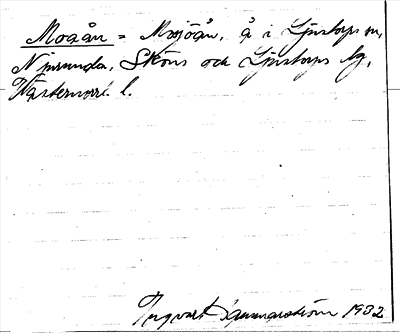 Mogån = Mosjöån, å i Ljustorps sn,
Njurunda, Sköns och Ljustorps tg,
Västernorrl. l.
Ingvar Hammarström 1932